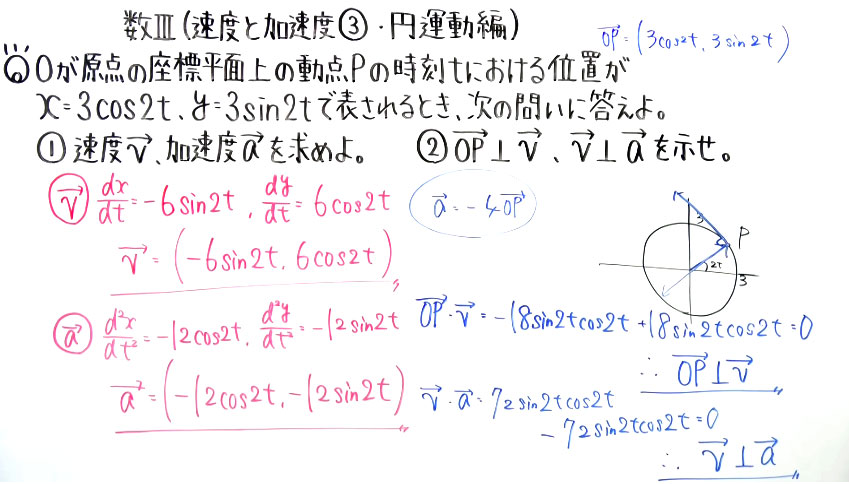 数Ⅲ(速度と加速度③・円運動編)
OP→=(3cos2t, 3sin2t)
◎Oが原点の座標平面上の動点Pの時刻tにおける位置が
x=3cos2t、y=3sin2tで表されるとき、次の問いに答えよ。
①速度v→、加速度a→を求めよ。 ②OP→⊥v→、v→⊥a→を示せ。
v→ dx/dt=-6sin2t, dy/dt=6cos2t
v→=(-6sin2t, 6cos2t)
a→ d²x/dt²=-12cos2t, d²y/dt²=-12sin2t
a→=(-12cos2t, -12sin2t)
a→=-4OP→
3
P
2t
3
OP→・v→=-18sin2tcos2t+18sin2tcos2t=0
∴ OP→⊥v→
v→・a→=72sin2tcos2t
-72sin2tcos2t=0
∴ v→⊥a→